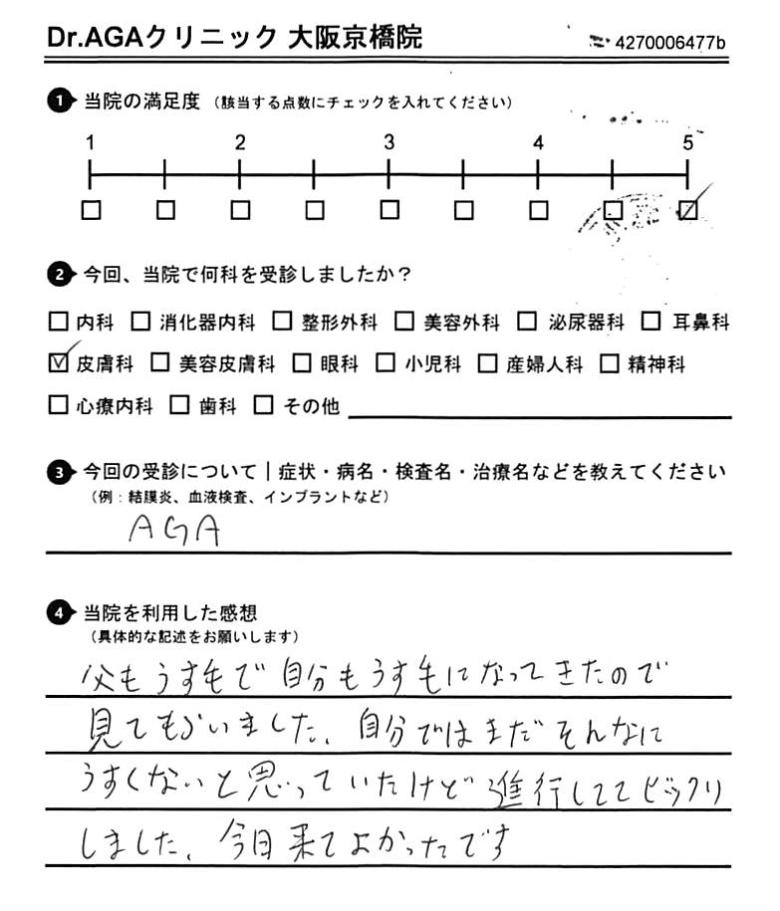 Dr.AGAクリニック 大阪京橋院
4270006477b
1 当院の満足度 (該当する点数にチェックを入れてください)
1 2 3 4 5
2 今回、当院で何科を受診しましたか?
□ 内科 □ 消化器内科 □ 整形外科 □ 美容外科 □ 泌尿器科 □ 耳鼻科
☑ 皮膚科 □ 美容皮膚科 □ 眼科 □ 小児科 □ 産婦人科 □ 精神科
□ 心療内科 □ 歯科 □ その他
3 今回の受診について|症状・病名・検査名・治療名などを教えてください
(例:結膜炎、血液検査、インプラントなど)
AGA
4 当院を利用した感想
(具体的な記述をお願いします)
父もうす毛で自分もうす毛になってきたので
見てもらいました、自分ではまだそんなに
うすくないと思っていたけど進行しててビックリ
しました、今日来てよかったです